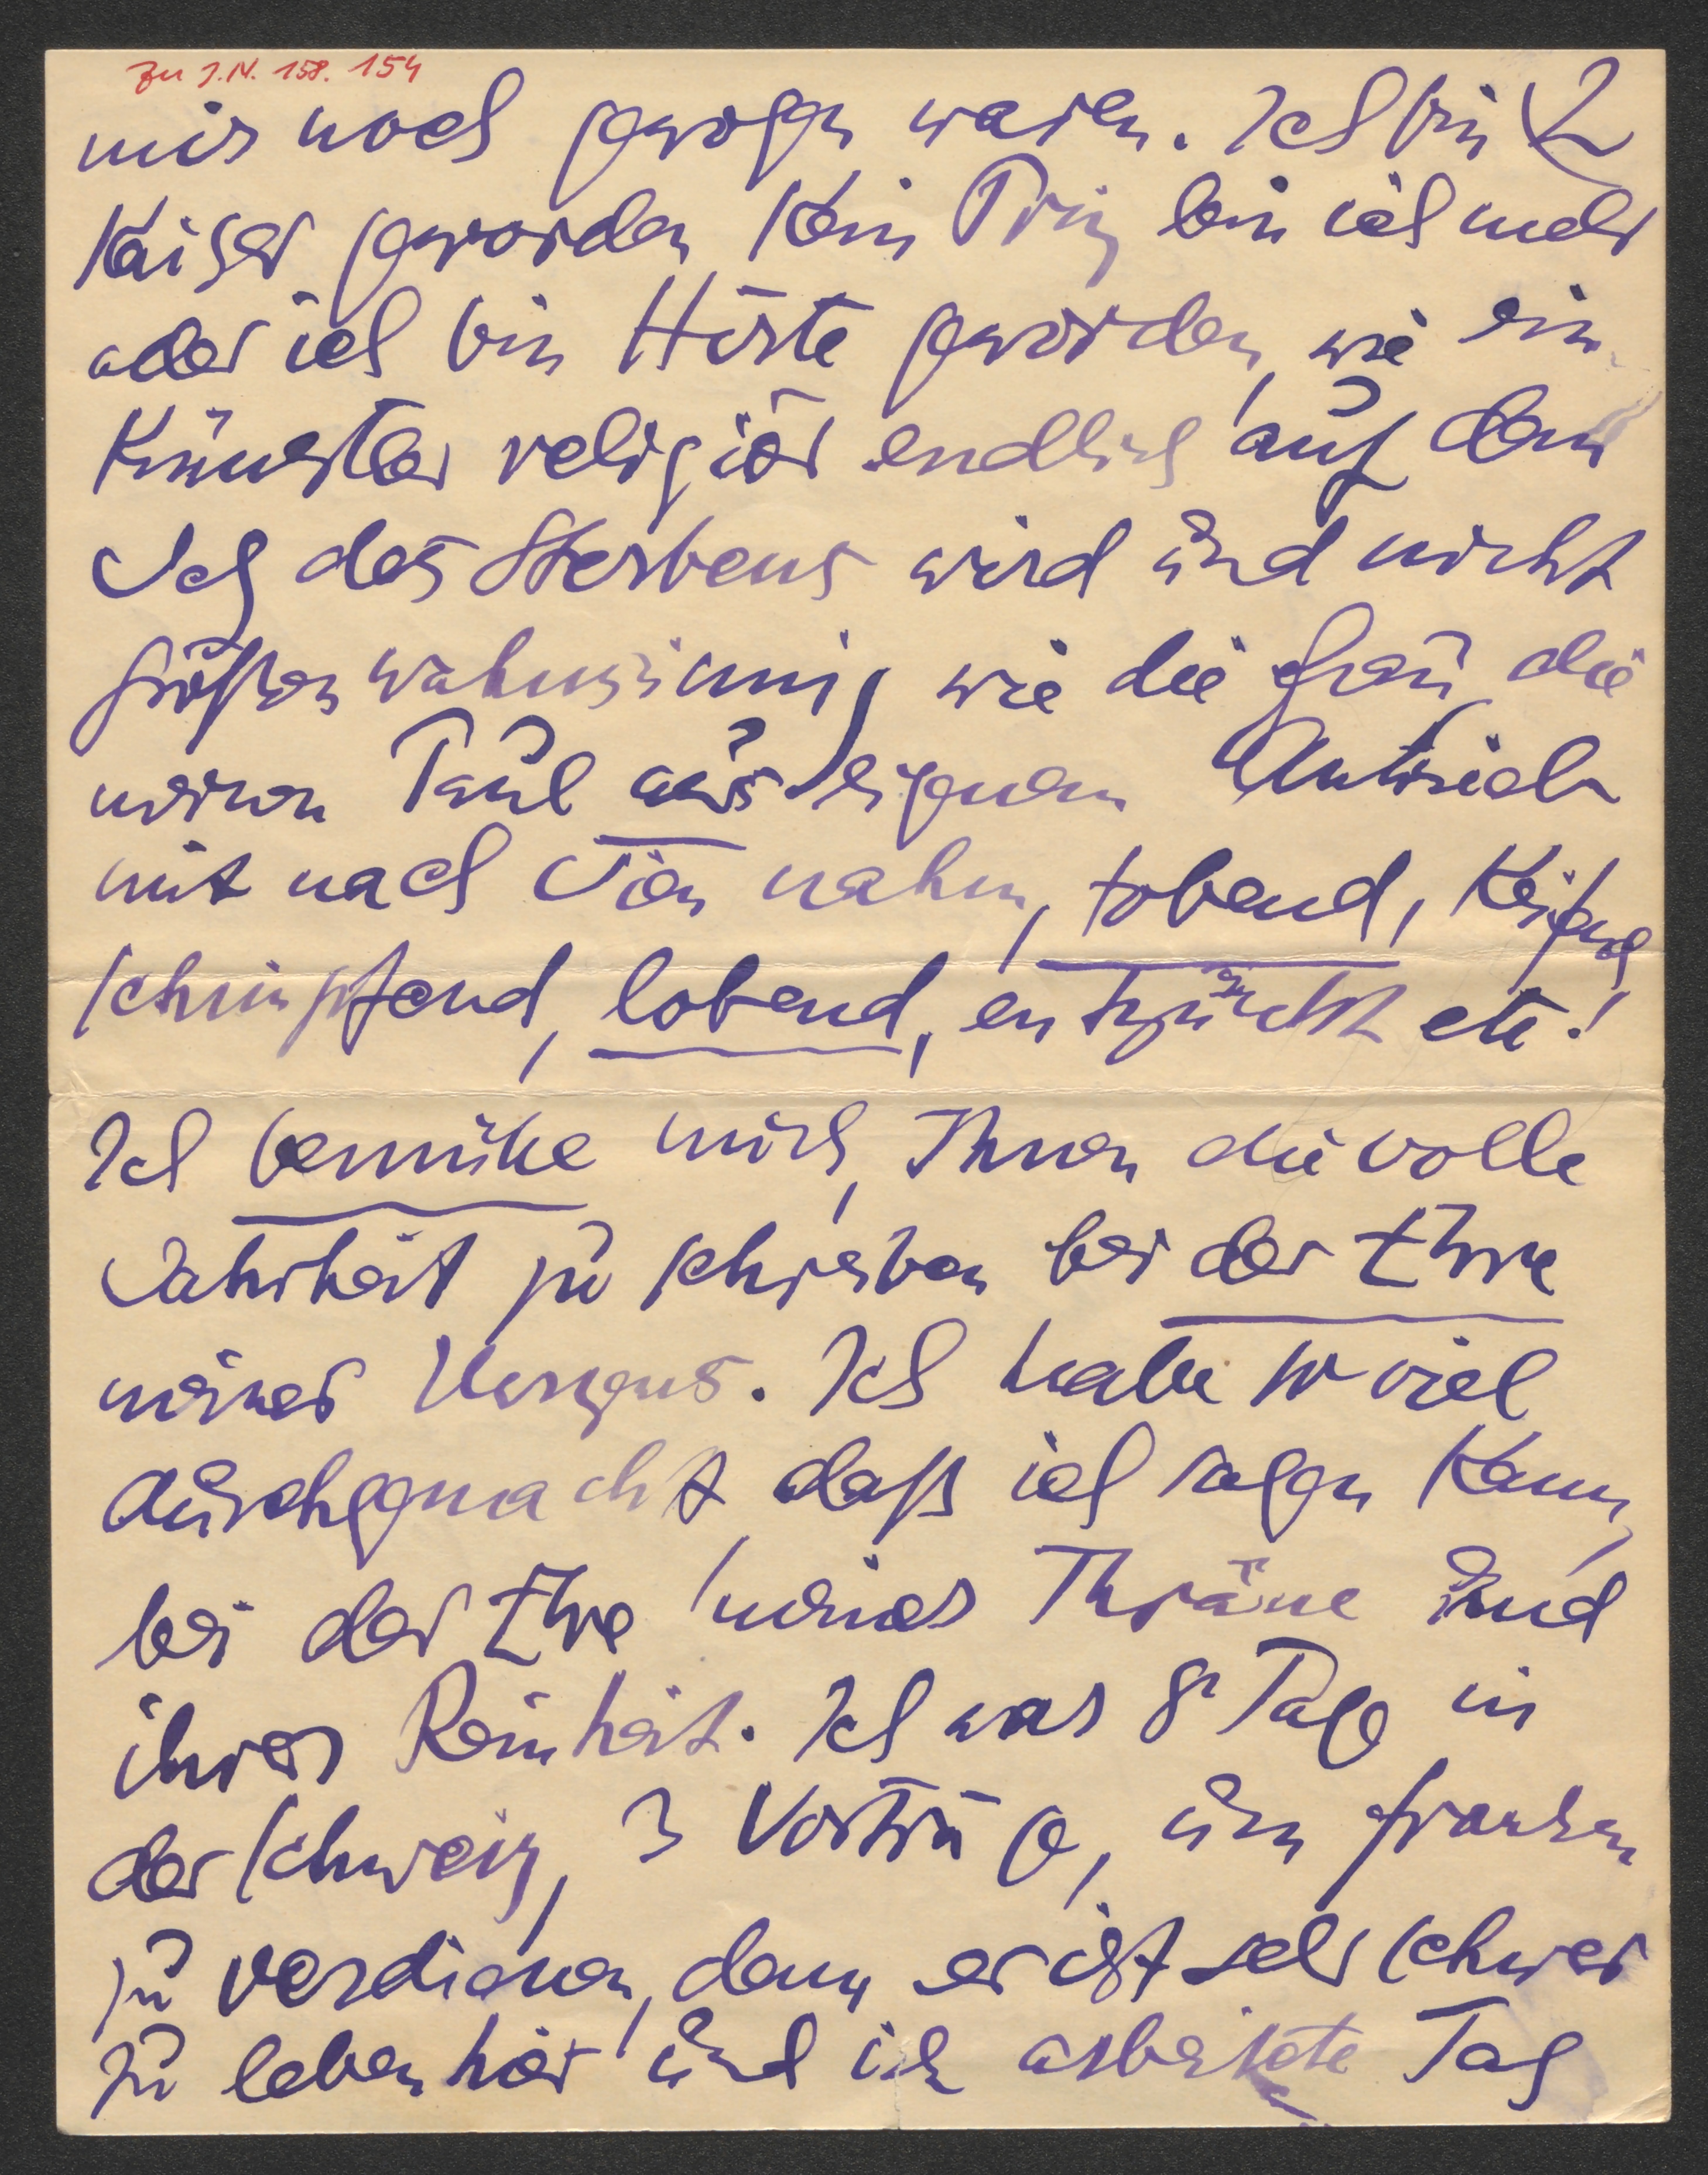 Zu I.N. 158.154
mir noch gewogen waren. Ich bin 2
Kaiser geworden kein Prinz bin ich mehr
aber ich bin Hirte geworden, wie ein
Künstler religiös endlich auf dem
Weg des Sterbens wird und nicht
größenwahnsinnig wie die Frau, die
meinen Paul aus eignem Antrieb
mit nach Wien nahm, tobend, keifend
schimpfend, lobend, entzückt etc!
Ich bemühe mich, Ihnen die volle
Wahrheit zu schreiben bei der Ehre
meines Herzens. Ich habe so viel
durchgemacht daß ich sagen kann,
bei der Ehre meiner Thräne und
ihrer Reinheit. Ich war 8 Tage in
der Schweiz, 3 Vorträge, um Franken
zu verdienen, denn er ist sehr schwer
zu leben hier und ich arbeitete Tag